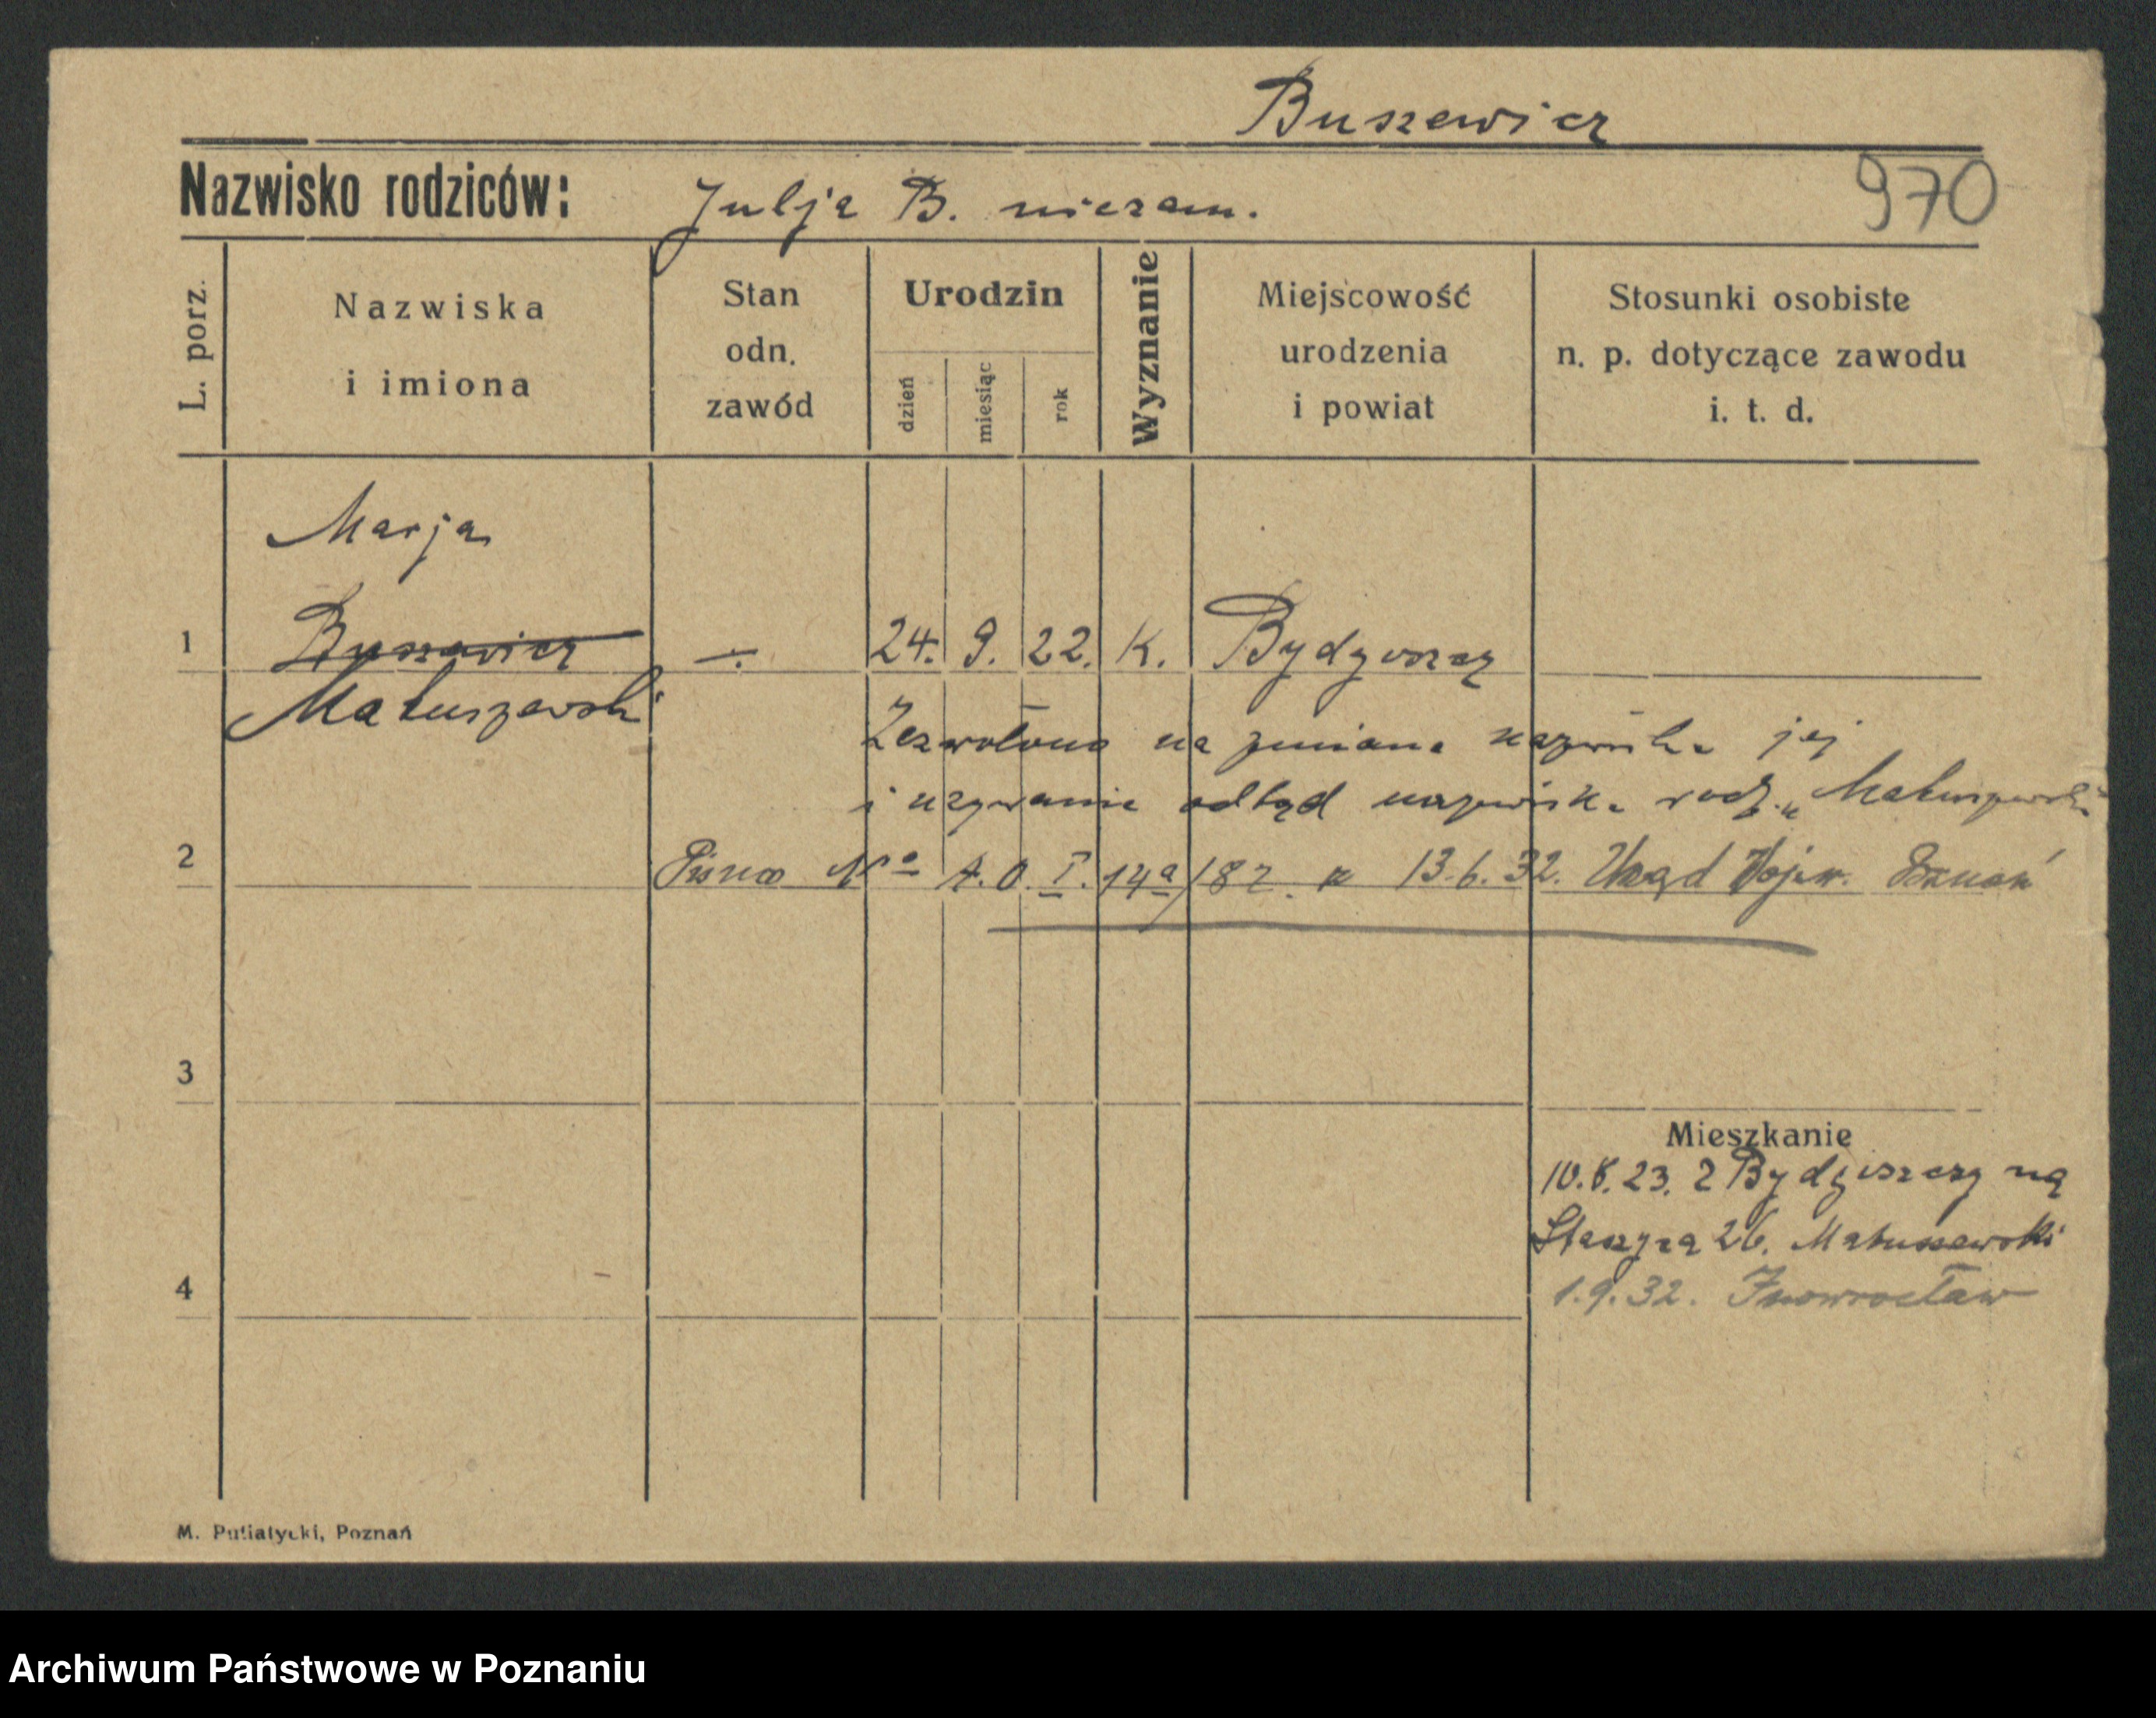 Buszewicz
Nazwisko rodziców: Julja B. niezam.
970
L. porz.
Nazwiska i imiona
Stan odn. zawód
Urodzin
dzień
miesiąc
rok
Wyznanie
Miejscowość urodzenia i powiat
Stosunki osobiste n. p. dotyczące zawodu i. t. d.
Marja
1 Buszewicz 24. 9. 22. K. Bydgoszcz
Matuszewski
Zezwolono na zmianę nazwiska jej
i używanie odtąd nazwiska rodz. „Matuszewski
2 Pismo No A.O. I. 14a/ z 13.6.32. Urząd Wojew. Poznań
3
Mieszkanie
10.8.23. z Bydgoszczy na
Staszyca 26. Matuszewski
4 1.9.32. Inowrocław
M. Putiatycki, Poznań
Archiwum Państwowe w Poznaniu